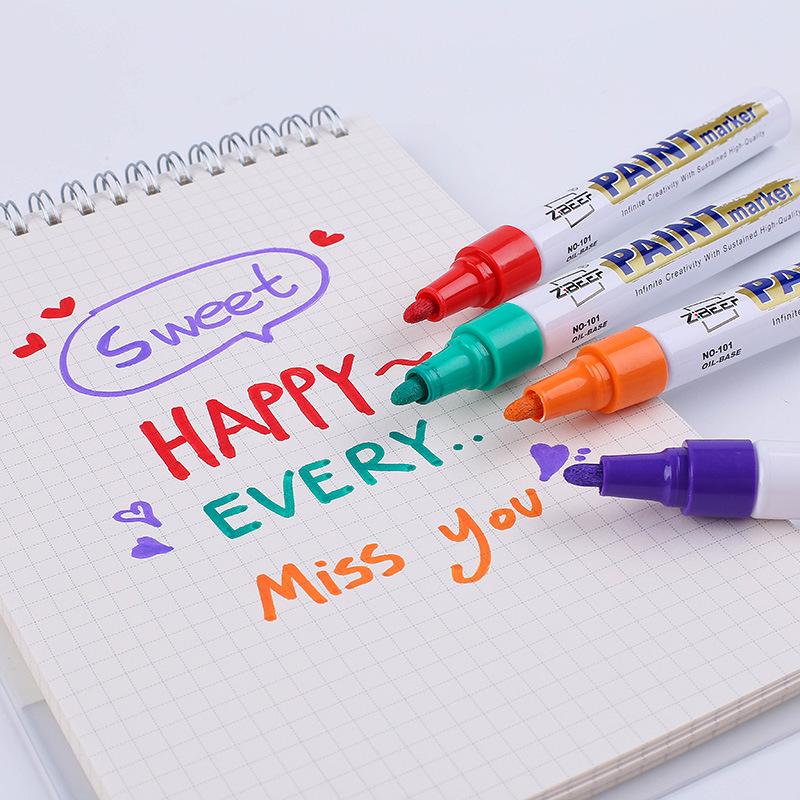 Sweet
HAPPY~
EVERY..
Miss you
ZiBEEF PAINT marker
Infinite Creativity With Sustained High-Quality
NO-101
OIL-BASE
ZiBEEF PAINT marker
Infinite Creativity With Sustained High-Quality
NO-101
OIL-BASE
ZiBEEF PA
Infinite
NO-101
OIL-BASE